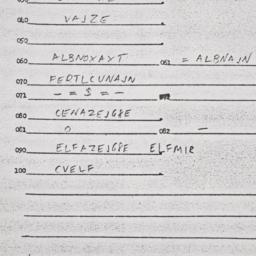 040 VAJZE
050
060 ALBNOXAXT 061 = ALBNAJN
070 FEDTLCUNAJN
071 - = $ = -
080 CENAZEJG8E
081 0 082 -
090 ELFAZEJG8E ELFMIR
100 CVELF